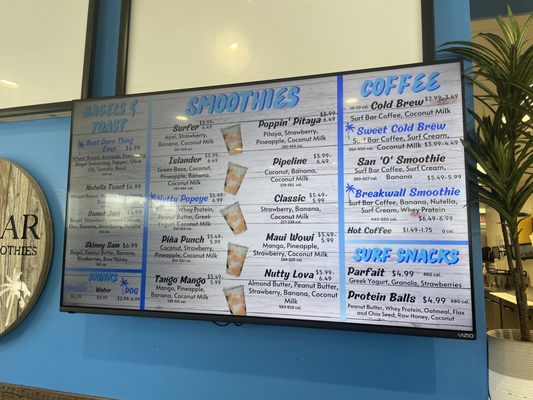 BAR
SMOOTHIES
BAGELS &
TOAST
Best Darn Thing
Ever $6.99
Wheat Bread, Avocado,
Bagel Seasoning, Pepper, Olive
Oil, Tomato, Beef
Nutella Toast $6.99
Sweet Javi $4.99
Skinny Sam $6.99
Wheat Bread, Peanut Butter,
Banana, Blueberry
DRINKS
Water
DOG
SMOOTHIES
Surfer $5.99-
6.49
Açai, Strawberry,
Banana, Coconut Milk
Islander $5.99-
6.49
Green Base, Coconut,
Pineapple, Banana,
Coconut Milk
Nutty Popeye $5.99-
6.49
Whey Protein,
Peanut Butter, Green
Base, Banana,
Coconut Milk
Piña Punch $5.49-
5.99
Coconut, Strawberry,
Pineapple, Banana,
Coconut Milk
Tango Mango $5.49-
5.99
Mango, Pineapple,
Banana, Coconut Milk
Poppin' Pitaya $5.99-
6.49
Pitaya, Strawberry,
Pineapple, Coconut Milk
Pipeline $5.99-
6.49
Coconut, Banana,
Nutella, Coconut Milk
Classic $5.49-
5.99
Strawberry, Banana,
Coconut Milk
Maui Wowi $5.49-
5.99
Mango, Pineapple,
Strawberry, Coconut Milk
Nutty Lova $5.99-
6.49
Almond Butter, Peanut Butter,
Strawberry, Banana, Coconut
Milk
COFFEE
Cold Brew $2.99-3.49
Surf Bar Coffee, Coconut Milk
Sweet Cold Brew
Surf Bar Coffee, Surf Cream,
Coconut Milk $3.99-4.49
San 'O' Smoothie
Surf Bar Coffee, Surf Cream,
Banana $5.49-5.99
Breakwall Smoothie
Surf Bar Coffee, Banana, Nutella,
Surf Cream, Whey Protein
$6.49-6.99
Hot Coffee $1.49-1.75 0 cal.
SURF SNACKS
Parfait $4.99 460 cal.
Greek Yogurt, Granola, Strawberries
Protein Balls $4.99 690 cal.
Peanut Butter, Whey Protein, Oatmeal, Flax
and Chia Seed, Raw Honey, Coconut
VIZIO